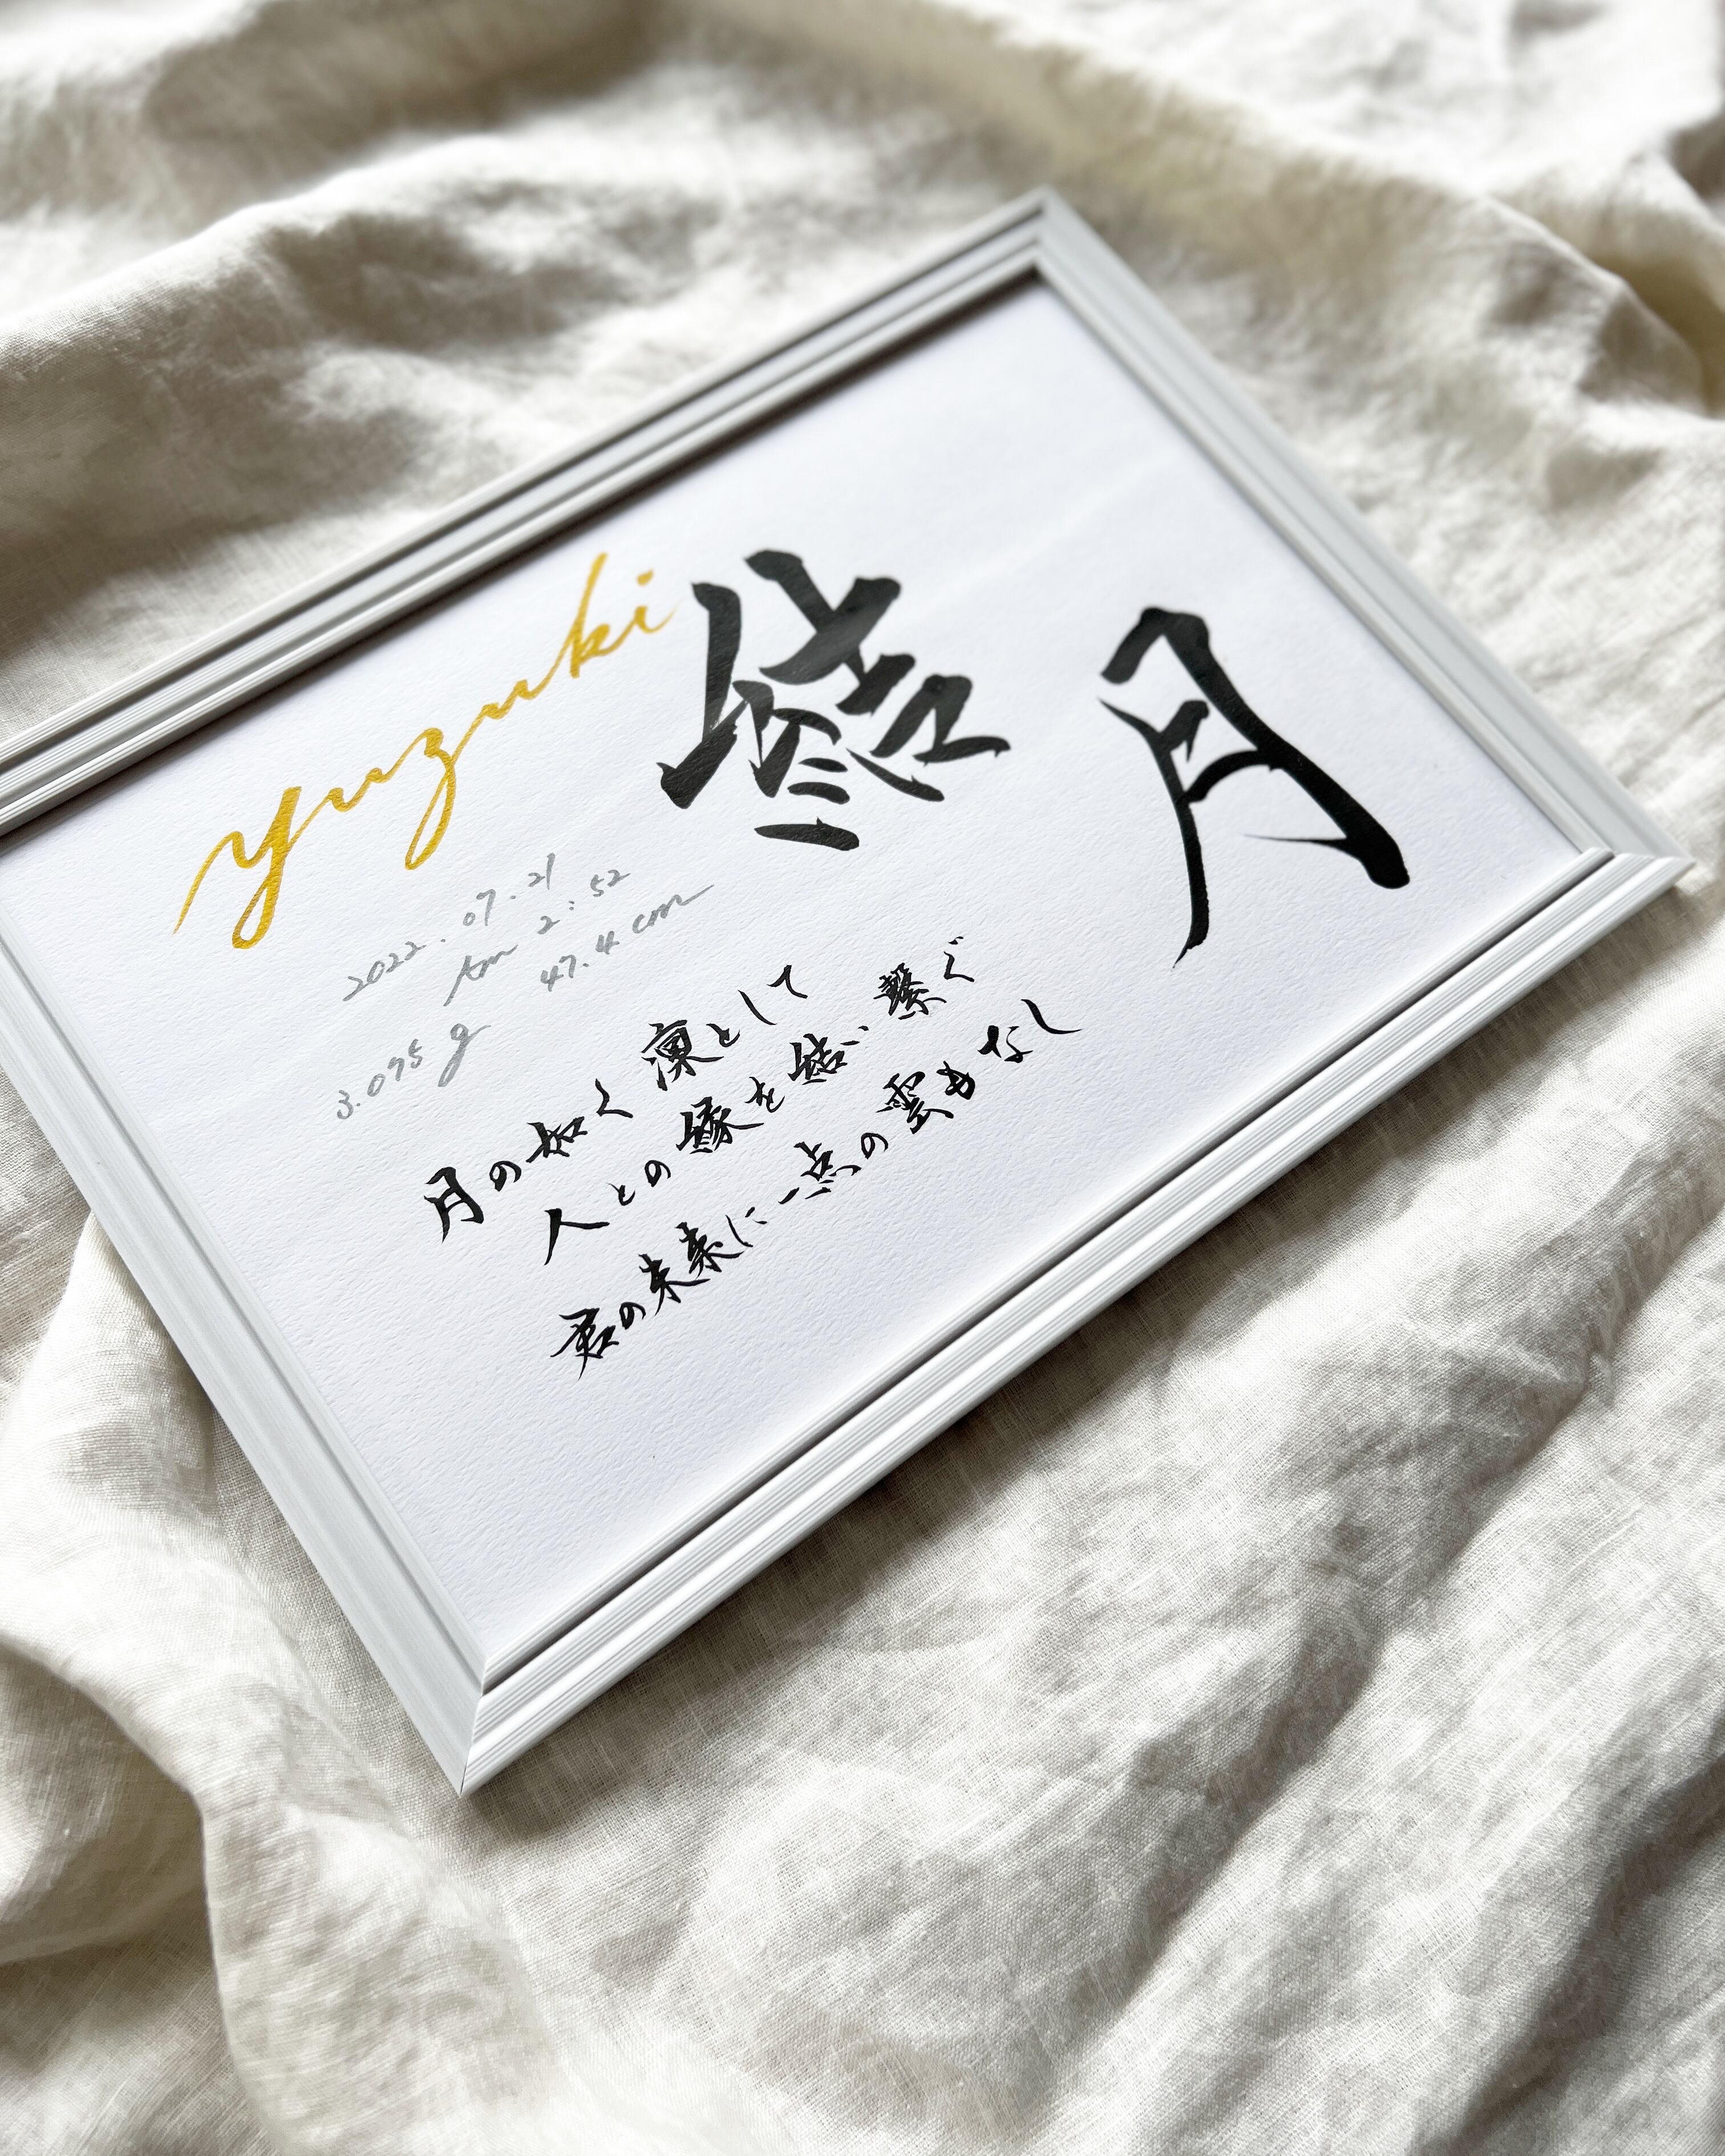 yuzuki
結月
2022.07.21
Am 2:52
47.4 cm
3.075 g
月の如く凛として
人との縁を結い繋ぐ
君の未来に一点の雲もなし